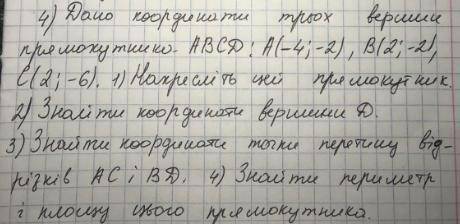 4) Дано координати трьох вершин
прямокутника ABCD: A(-4;-2), B(2;-2),
C(2;-6). 1) Накресліть цей прямокутник.
2) Знайти координати вершини D.
3) Знайти координати точки перетину від-
різків AC і BD. 4) Знайти периметр
і площу цього прямокутника.